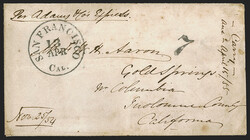 Per Adams & Co Express.
SAN FRANCISCO
APR
CAL.
7
H. Aaron
Gold Springs
Nr Columbia
Tuolumne County
California
Nov 25/54